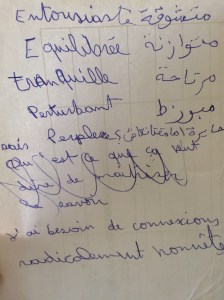 Entousiaste متشوقة
Equilibrée متوازنة
tranquille مرتاحة
Perturbant
Perplexe حائرة
Qu'est ce que ça peut
dire de
savoir
j'ai besoin de connexions
radicalement honnête